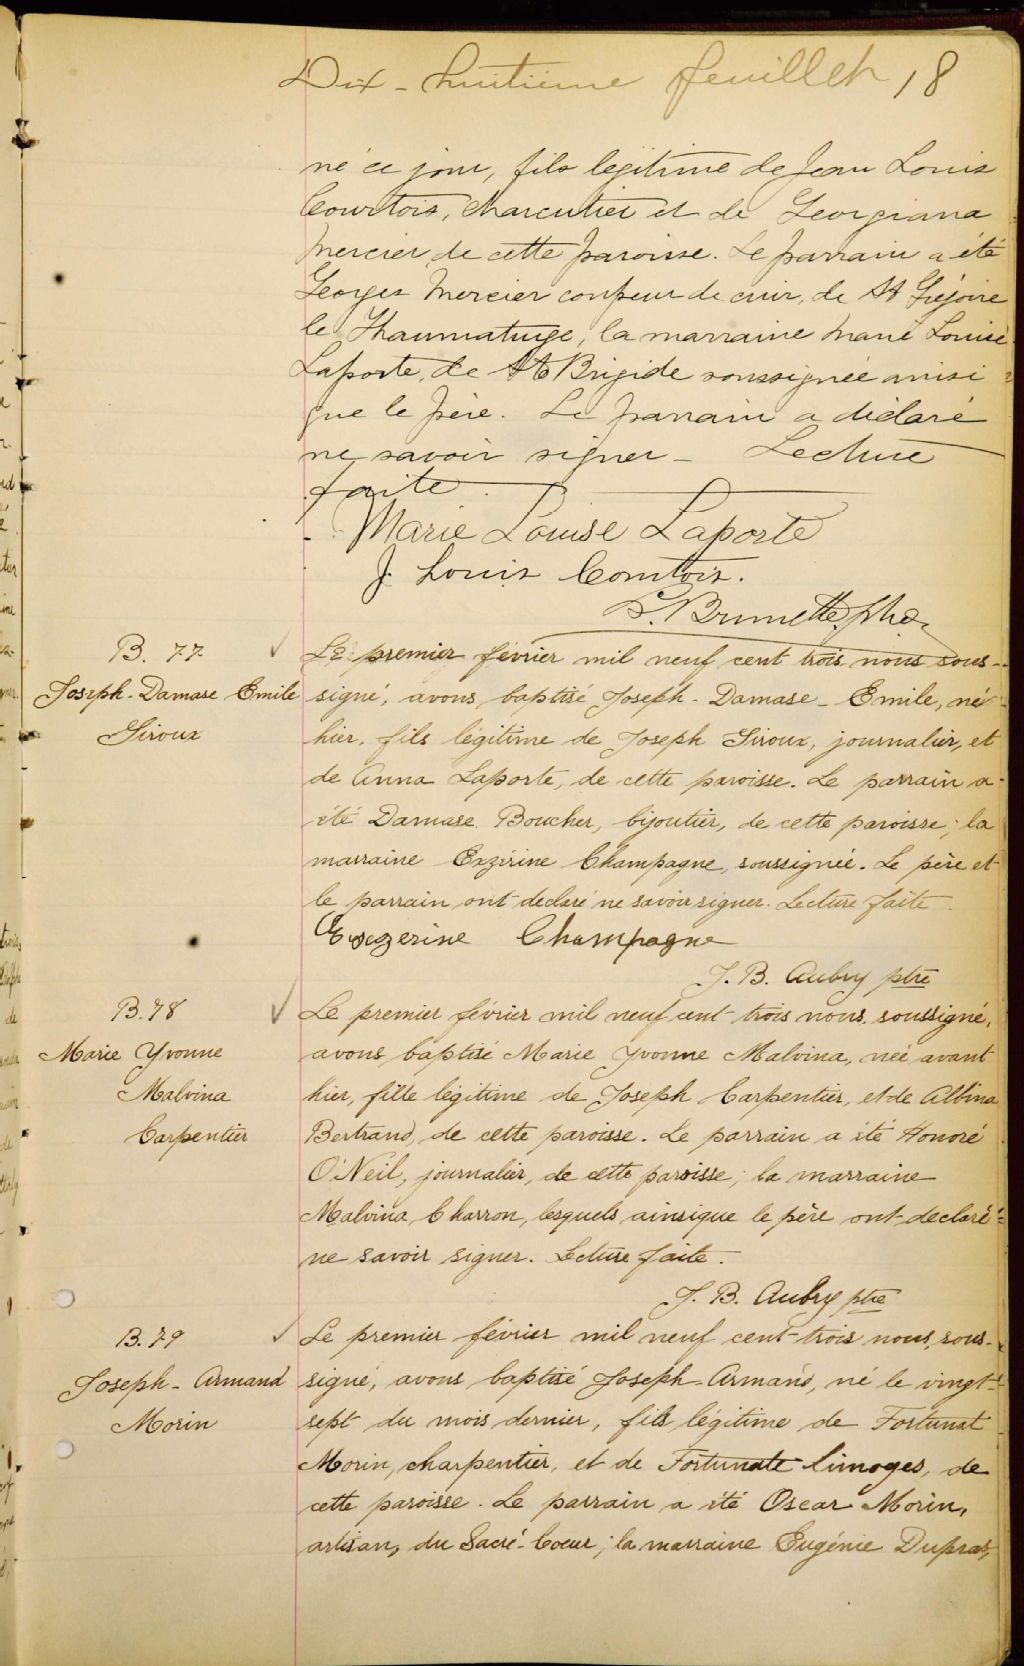 Dix-huitième feuillet 18
né ce jour, fils légitime de Jean Louis
Comtois, charcutier et de Georgiana
Mercier de cette paroisse. Le parrain a été
Georges Mercier coupeur de cuir, de St Grégoire
le Thaumatuge, la marraine Marie Louise
Laporte, de Ste Brigide soussignée ainsi
que le père. Le parrain a déclaré
ne savoir signer - Lecture
faite.
Marie Louise Laporte
J. Louis Comtois.
Brunette, ptre
B. 77
Joseph-Damase Emile
Giroux
Le premier février mil neuf cent trois nous sous-
signé, avons baptisé Joseph-Damase-Emile, né
hier, fils légitime de Joseph Giroux, journalier, et
de Anna Laporte, de cette paroisse. Le parrain a
été Damase Boucher, bijoutier, de cette paroisse; la
marraine Exzérine Champagne, soussignée. Le père et
le parrain ont declaré ne savoir signer. Lecture faite.
Exzerine Champagne
J. B. Aubry ptre
B. 78
Marie Yvonne
Malvina
Carpentier
Le premier février mil neuf cent trois nous soussigné,
avons baptisé Marie Yvonne Malvina, née avant
hier, fille légitime de Joseph Carpentier, et de Albina
Bertrand, de cette paroisse. Le parrain a été Honoré
O'Neil, journalier, de cette paroisse; la marraine
Malvina Charron, lesquels ainsi que le père ont declaré
ne savoir signer. Lecture faite.
J. B. Aubry ptre
B. 79
Joseph-Armand
Morin
Le premier février mil neuf cent trois nous, sous-
signé, avons baptisé Joseph-Armand, né le vingt-
sept du mois dernier, fils légitime de Fortunat
Morin, charpentier, et de Fortunate Limoges, de
cette paroisse. Le parrain a été Oscar Morin,
artisan, du Sacré-Coeur; la marraine Eugénie Dupras,